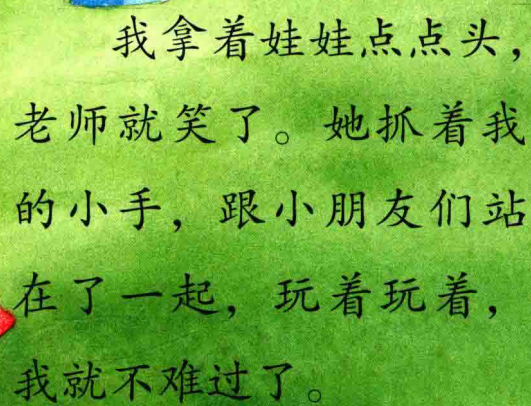 我拿着娃娃点点头，
老师就笑了。她抓着我
的小手，跟小朋友们站
在了一起，玩着玩着，
我就不难过了。